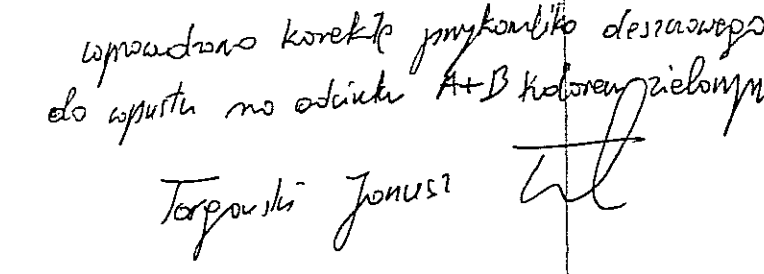 wprowadzono korektę przykanalika deszczowego
do wpustu na odcinku A+B kolorem zielonym
Targowski Janusz